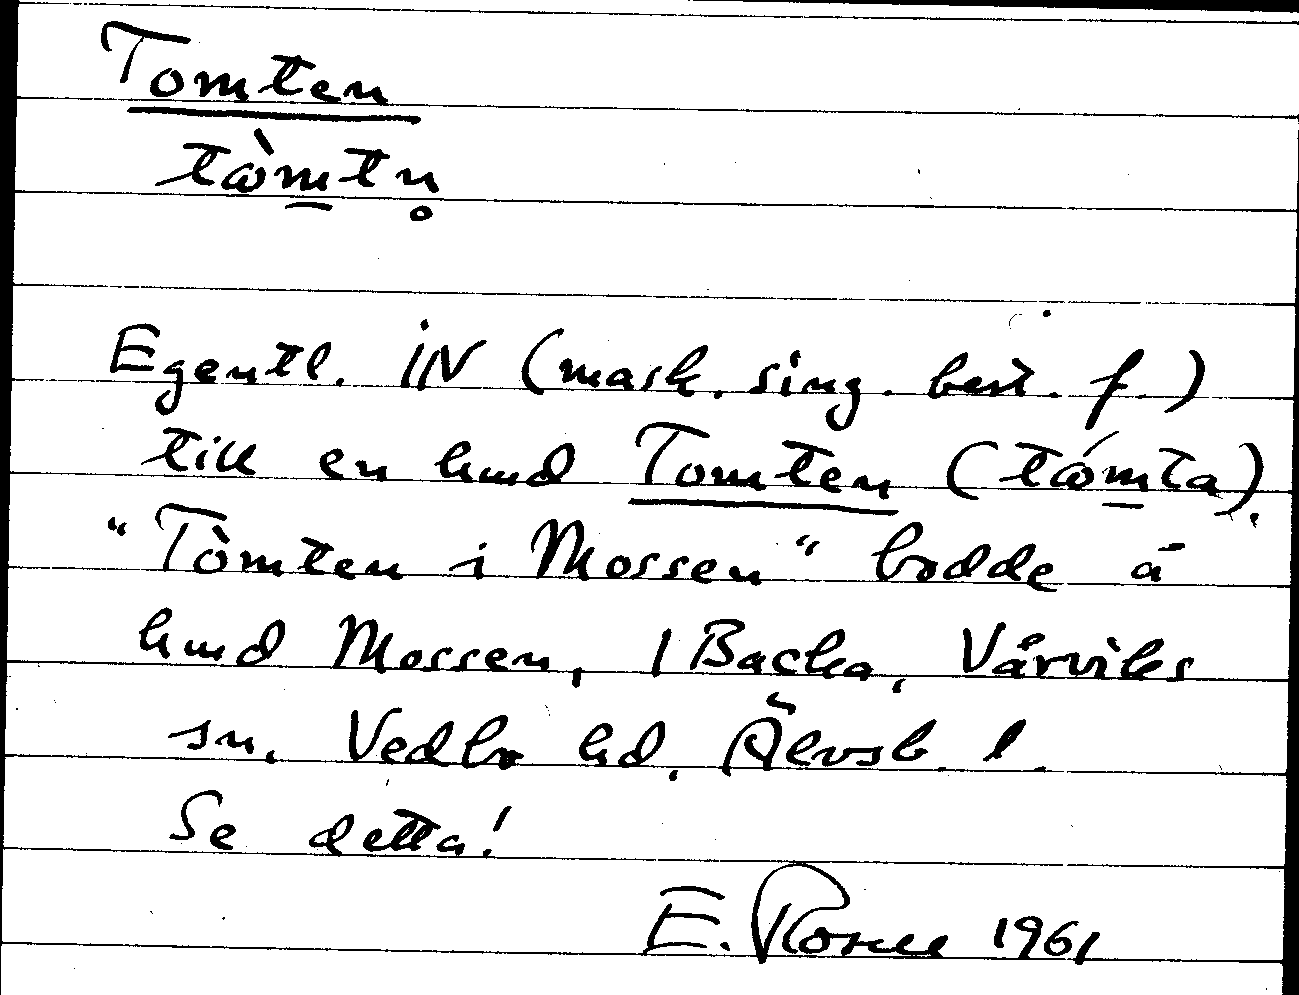 Tomten
tɷ̀m̲tn̥
Egentl. iN (mask. sing. best. f.)
till en hmd Tomten (tɷ́m̲ta).
"Tòmten i Mossen" bodde å
hmd Mossen, 1 Backa, Vårviks
sn. Vedbo hd. Älvsb. l.
Se detta!
E. Rosell 1961